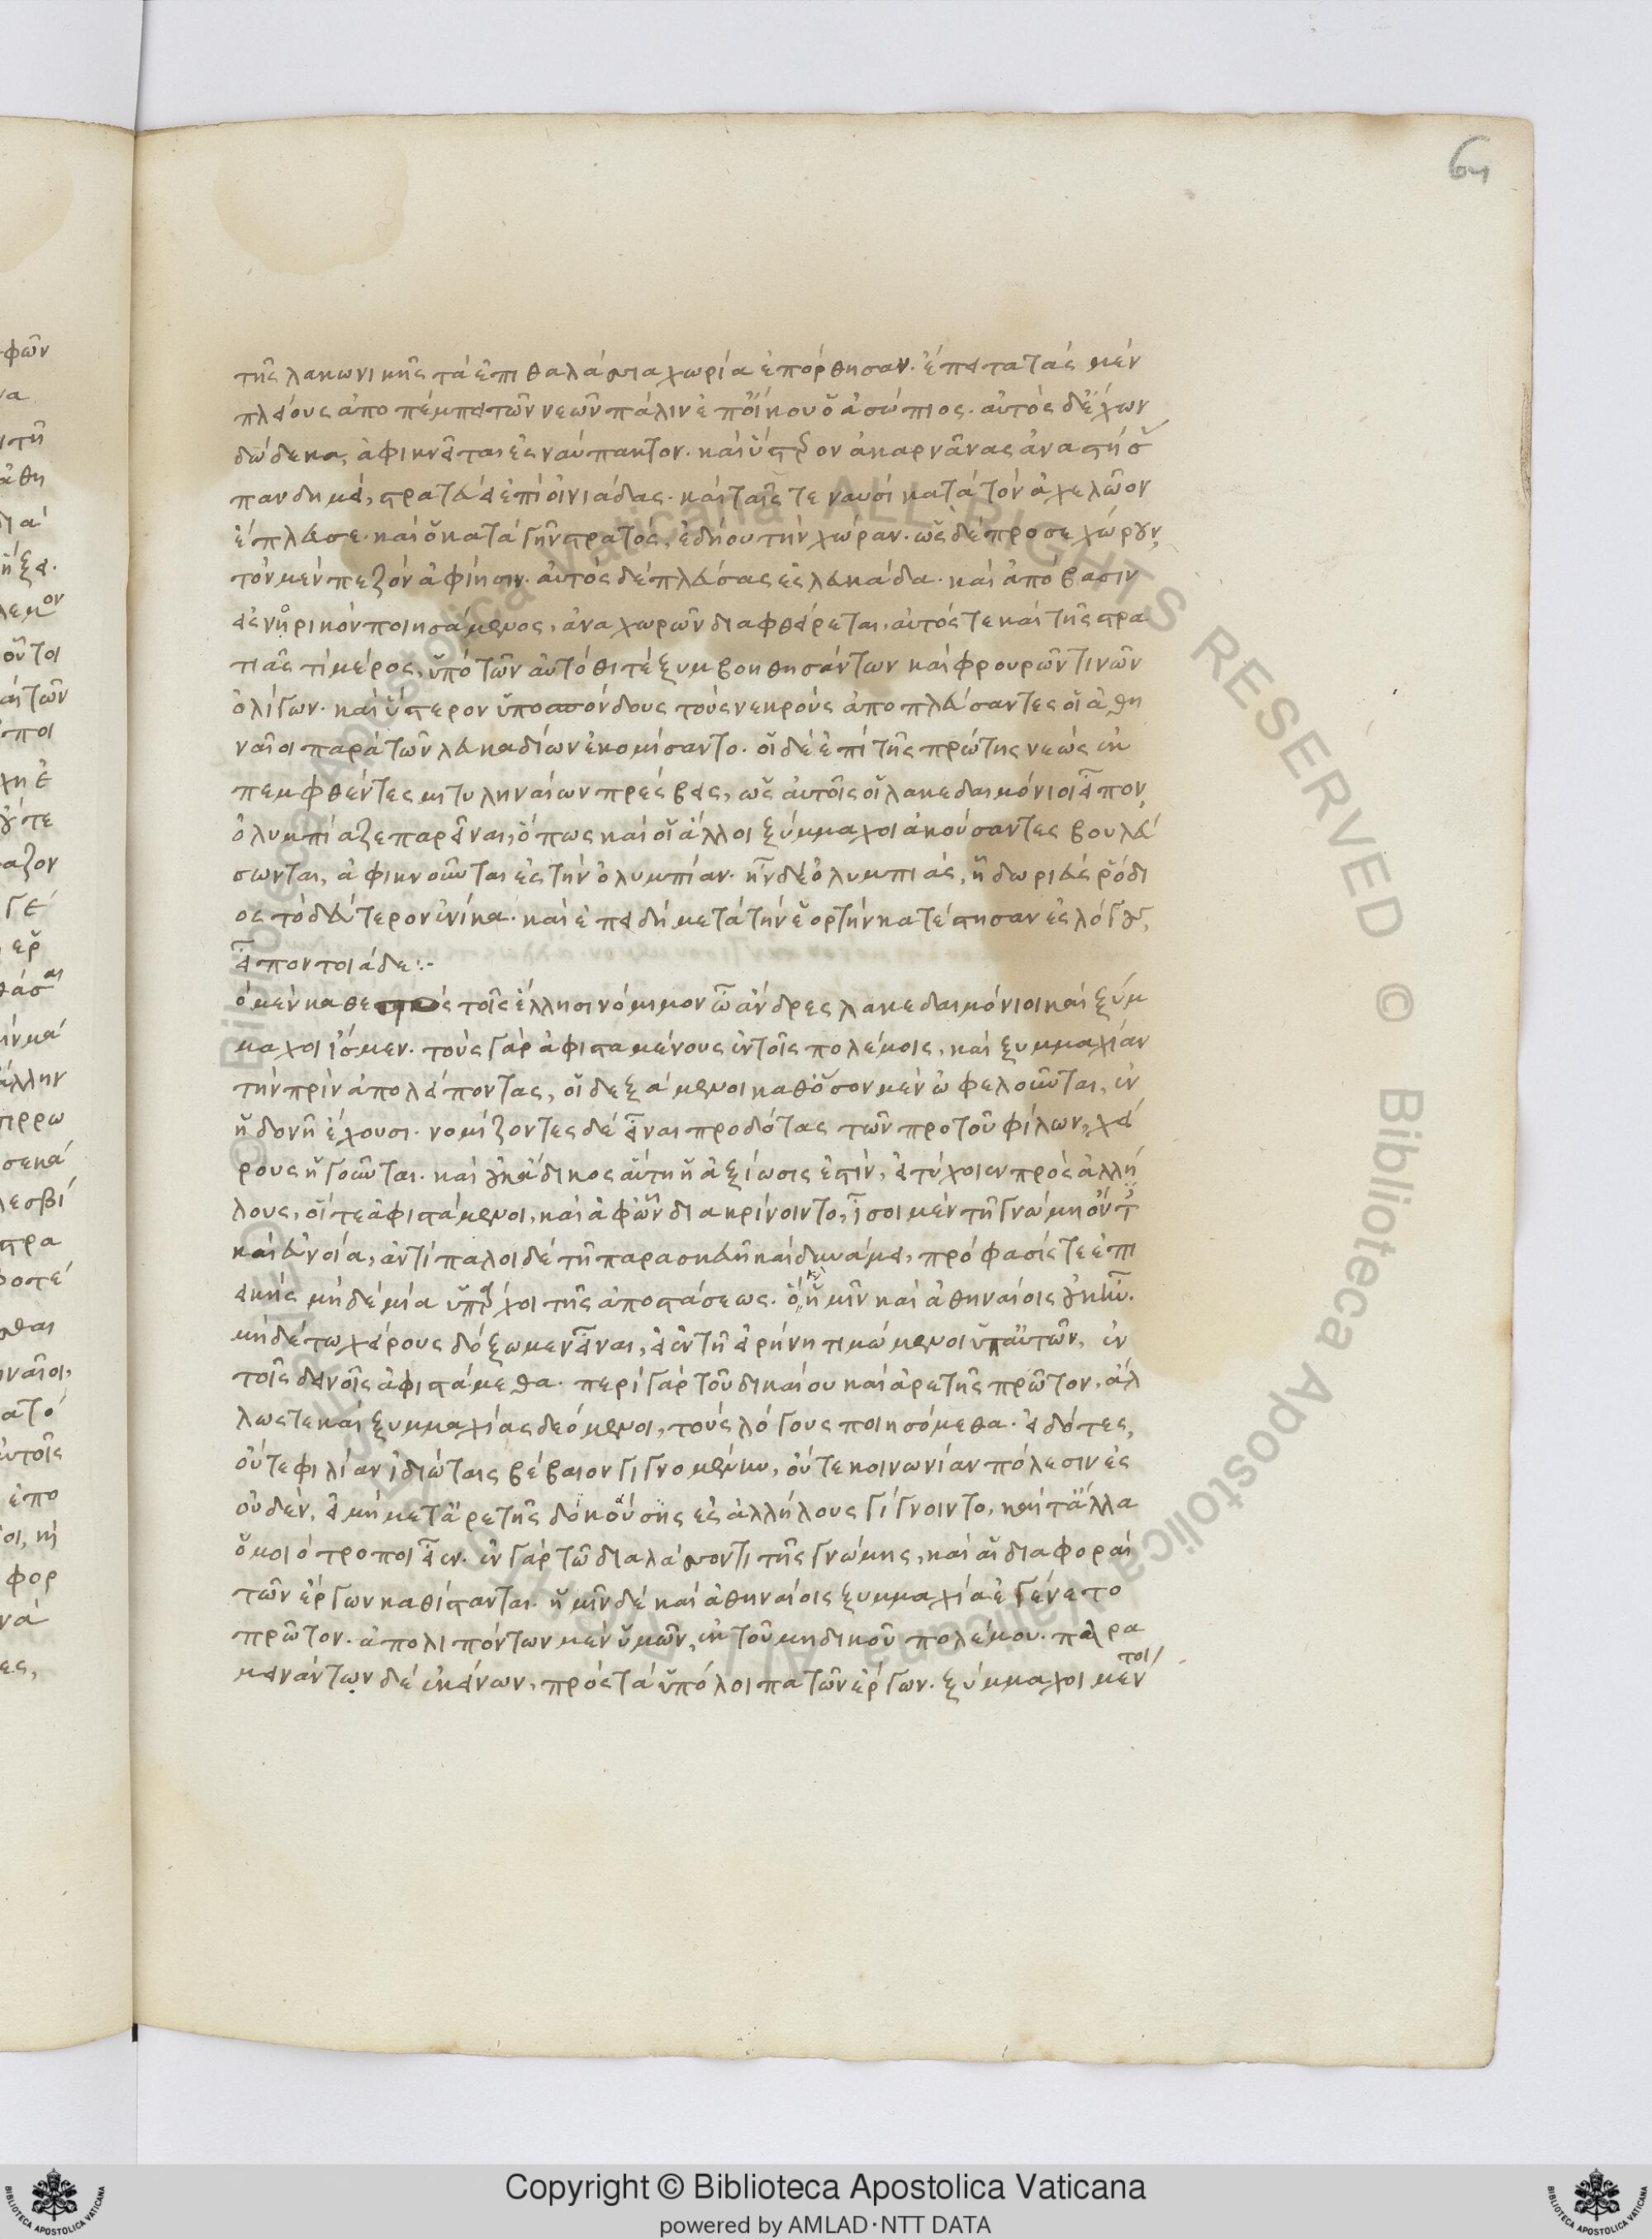 64
τῆς λακωνικῆς τὰ ἐπιθαλάσσια χωρία ἐπόρθησαν. ἔπειτα τὰς μὲν
πλείους ἀποπέμπει τῶν νεῶν πάλιν ἐπ' οἴκου ὁ ἀσώπιος. αὐτὸς δ' ἔχων
δώδεκα, ἀφικνεῖται ἐς ναύπακτον. καὶ ὕστερον ἀκαρνᾶνας ἀναστήσ
πανδημεί, στρατεύει ἐπὶ οἰνιάδας. καὶ ταῖς τε ναυσὶ κατὰ τὸν ἀχελῶον
ἔπλευσε. καὶ ὁ κατὰ γῆν στρατός, ἐδήου τὴν χώραν. ὡς δὲ προσεχώρουν,
τὸν μὲν πεζὸν ἀφίησιν. αὐτὸς δὲ πλεύσας ἐς λευκάδα. καὶ ἀπόβασιν
ἐς νήρικον ποιησάμενος, ἀναχωρῶν διαφθείρεται, αὐτός τε καὶ τῆς στρα
τιᾶς τι μέρος, ὑπὸ τῶν αὐτόθι τὲ ξυμβοηθησάντων καὶ φρουρῶν τινῶν
ὀλίγων. καὶ ὕστερον ὑποσπόνδους τοὺς νεκροὺς ἀποπλεύσαντες οἱ ἀθη
ναῖοι παρὰ τῶν λευκαδίων ἐκομίσαντο. οἱ δὲ ἐπὶ τῆς πρώτης νεὼς ἐκ
πεμφθέντες μιτυληναίων πρέσβεις, ὡς αὐτοῖς οἱ λακεδαιμόνιοι εἶπον,
ὀλυμπίαζε παρεῖναι, ὅπως καὶ οἱ ἄλλοι ξύμμαχοι ἀκούσαντες βουλεύ
σωνται, ἀφικνοῦνται ἐς τὴν ὀλυμπίαν. ἦν δὲ ὀλυμπιάς, ᾗ δωριεὺς ῥόδι
ος τὸ δεύτερον ἐνίκα. καὶ ἐπειδὴ μετὰ τὴν ἑορτὴν κατέστησαν ἐς λόγους,
εἶπον τοιάδε :-
ὁ μὲν καθεστὼς τοῖς ἕλλησι νόμιμον ὦ ἄνδρες λακεδαιμόνιοι καὶ ξύμ
μαχοι ἴσμεν. τοὺς γὰρ ἀφισταμένους ἐν τοῖς πολέμοις, καὶ ξυμμαχίαν
τὴν πρὶν ἀπολείποντας, οἱ δεξάμενοι καθ' ὅσον μὲν ὠφελοῦνται, ἐν
ἡδονῇ ἔχουσι. νομίζοντες δὲ εἶναι προδότας τῶν προτοῦ φίλων, χεί
ρους ἡγοῦνται. καὶ οὐκ ἄδικος αὕτη ἡ ἀξίωσις ἐστίν, εἰ τύχοιεν πρὸς ἀλλή
λους, οἵ τε ἀφιστάμενοι, καὶ ἀφ' ὧν διακρίνοιντο, ἴσοι μὲν τῇ γνώμῃ ὄντ
καὶ εὐνοία, ἀντίπαλοι δὲ τῇ παρασκευῇ καὶ δυνάμει, πρόφασίς τε ἐπι
εικὴς μηδεμία ὑπάρχοι τῆς ἀποστάσεως. ὃ ἡμῖν καὶ ἀθηναίοις οὐκ ἦν.
μηδέ τω χείρους δόξωμεν εἶναι, εἰ ἐν τῇ εἰρήνῃ τιμώμενοι ὑπ' αὐτῶν, ἐν
τοῖς δεινοῖς ἀφιστάμεθα. περὶ γὰρ τοῦ δικαίου καὶ ἀρετῆς πρῶτον, ἄλ
λως τε καὶ ξυμμαχίας δεόμενοι, τοὺς λόγους ποιησόμεθα. εἰδότες,
οὔτε φιλίαν ἰδιώταις βέβαιον γιγνομένην, οὔτε κοινωνίαν πόλεσιν ἐς
οὐδέν, εἰ μὴ μετ' ἀρετῆς δοκούσης ἐς ἀλλήλους γίγνοιντο, καὶ τἄλλα
ὁμοιότροποι εἶεν. ἐν γὰρ τῷ διαλάσσοντι τῆς γνώμης, καὶ αἱ διαφοραὶ
τῶν ἔργων καθίστανται. ἡμῖν δὲ καὶ ἀθηναίοις ξυμμαχία ἐγένετο
πρῶτον. ἀπολιπόντων μὲν ὑμῶν, ἐκ τοῦ μηδικοῦ πολέμου. παρα
μεινάντων δὲ ἐκείνων, πρὸς τὰ ὑπόλοιπα τῶν ἔργων. ξύμμαχοι μέντοι
Copyright © Biblioteca Apostolica Vaticana
powered by AMLAD·NTT DATA